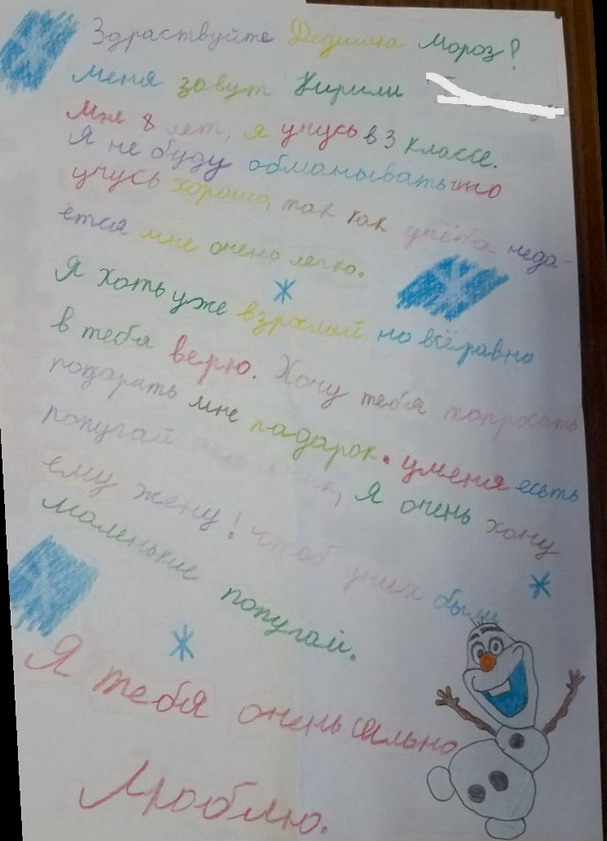 Здраствуйте Дедушка Мороз!
Меня зовут Кирилл
Мне 8 лет, я учусь в 3 классе.
Я не буду обманывать что
учусь хорошо, так как учёба неда-
ётся мне очено легко.
Я хоть уже взрослый но всёравно
в тебя верю. Хочу тебя попросить
подарить мне падарок. уменя есть
попугай Я очень хочу
ему жену! чтоб уних были
маленькие попугай.
Я тебя очень сильно
Люблю.